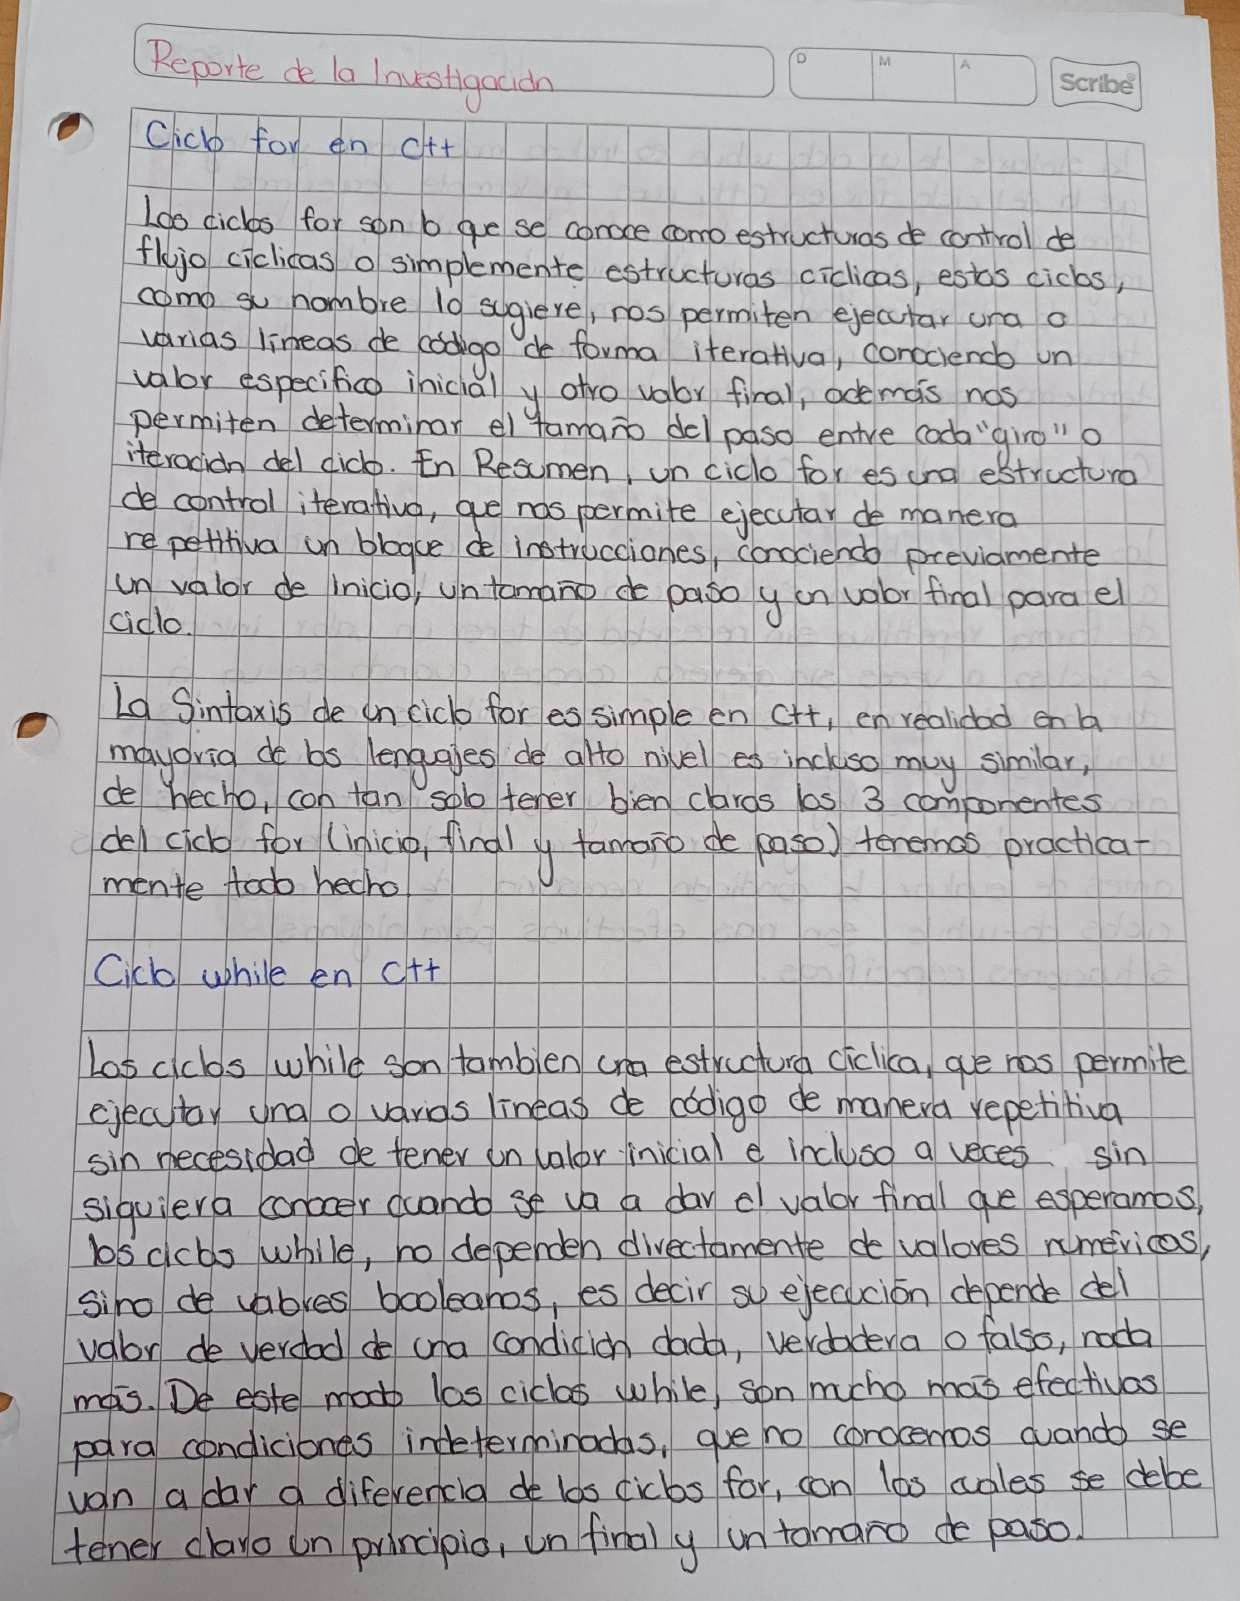 Reporte de la Investigación
D M A
Scribe
Ciclo for en C++
Los ciclos for son lo que se conoce como estructuras de control de
flujo cíclicas o simplemente estructuras cíclicas, estos ciclos,
como su nombre lo sugiere, nos permiten ejecutar una o
varias líneas de código de forma iterativa, conociendo un
valor especifico inicial y otro valor final, además nos
permiten determinar el tamaño del paso entre cada "giro" o
iteración del ciclo. En Resumen, un ciclo for es una estructura
de control iterativa, que nos permite ejecutar de manera
repetitiva un bloque de instrucciones, conociendo previamente
un valor de inicio, un tamaño de paso y un valor final para el
ciclo.
La Sintaxis de un ciclo for es simple en C++, en realidad en la
mayoria de los lenguajes de alto nivel es incluso muy similar,
de hecho, con tan solo tener bien claros los 3 componentes
del ciclo for (inicio, final y tamaño de paso) tenemos practica-
mente todo hecho
Ciclo while en C++
Los ciclos while son tambien una estructura cíclica, que nos permite
ejecutar una o varias líneas de código de manera repetitiva
sin necesidad de tener un valor inicial e incluso a veces sin
siquiera conocer cuando se va a dar el valor final que esperamos,
los ciclos while, no dependen directamente de valores numéricos,
sino de valores booleanos, es decir su ejecución depende del
valor de verdad de una condición dada, verdadera o falso, nada
más. De este modo los ciclos while, son mucho más efectivos
para condiciones indeterminadas, que no conocemos cuando se
van a dar a diferencia de los ciclos for, con los cuales se debe
tener claro un principio, un final y un tamaño de paso.